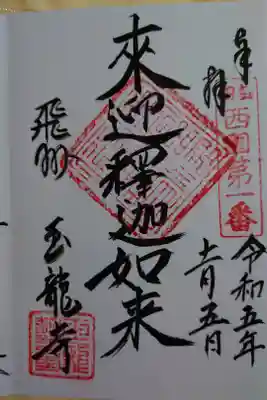 奉拝
西国第一番
令和五年
十一月五日
來迎釋迦如来
飛州
玉龍寺